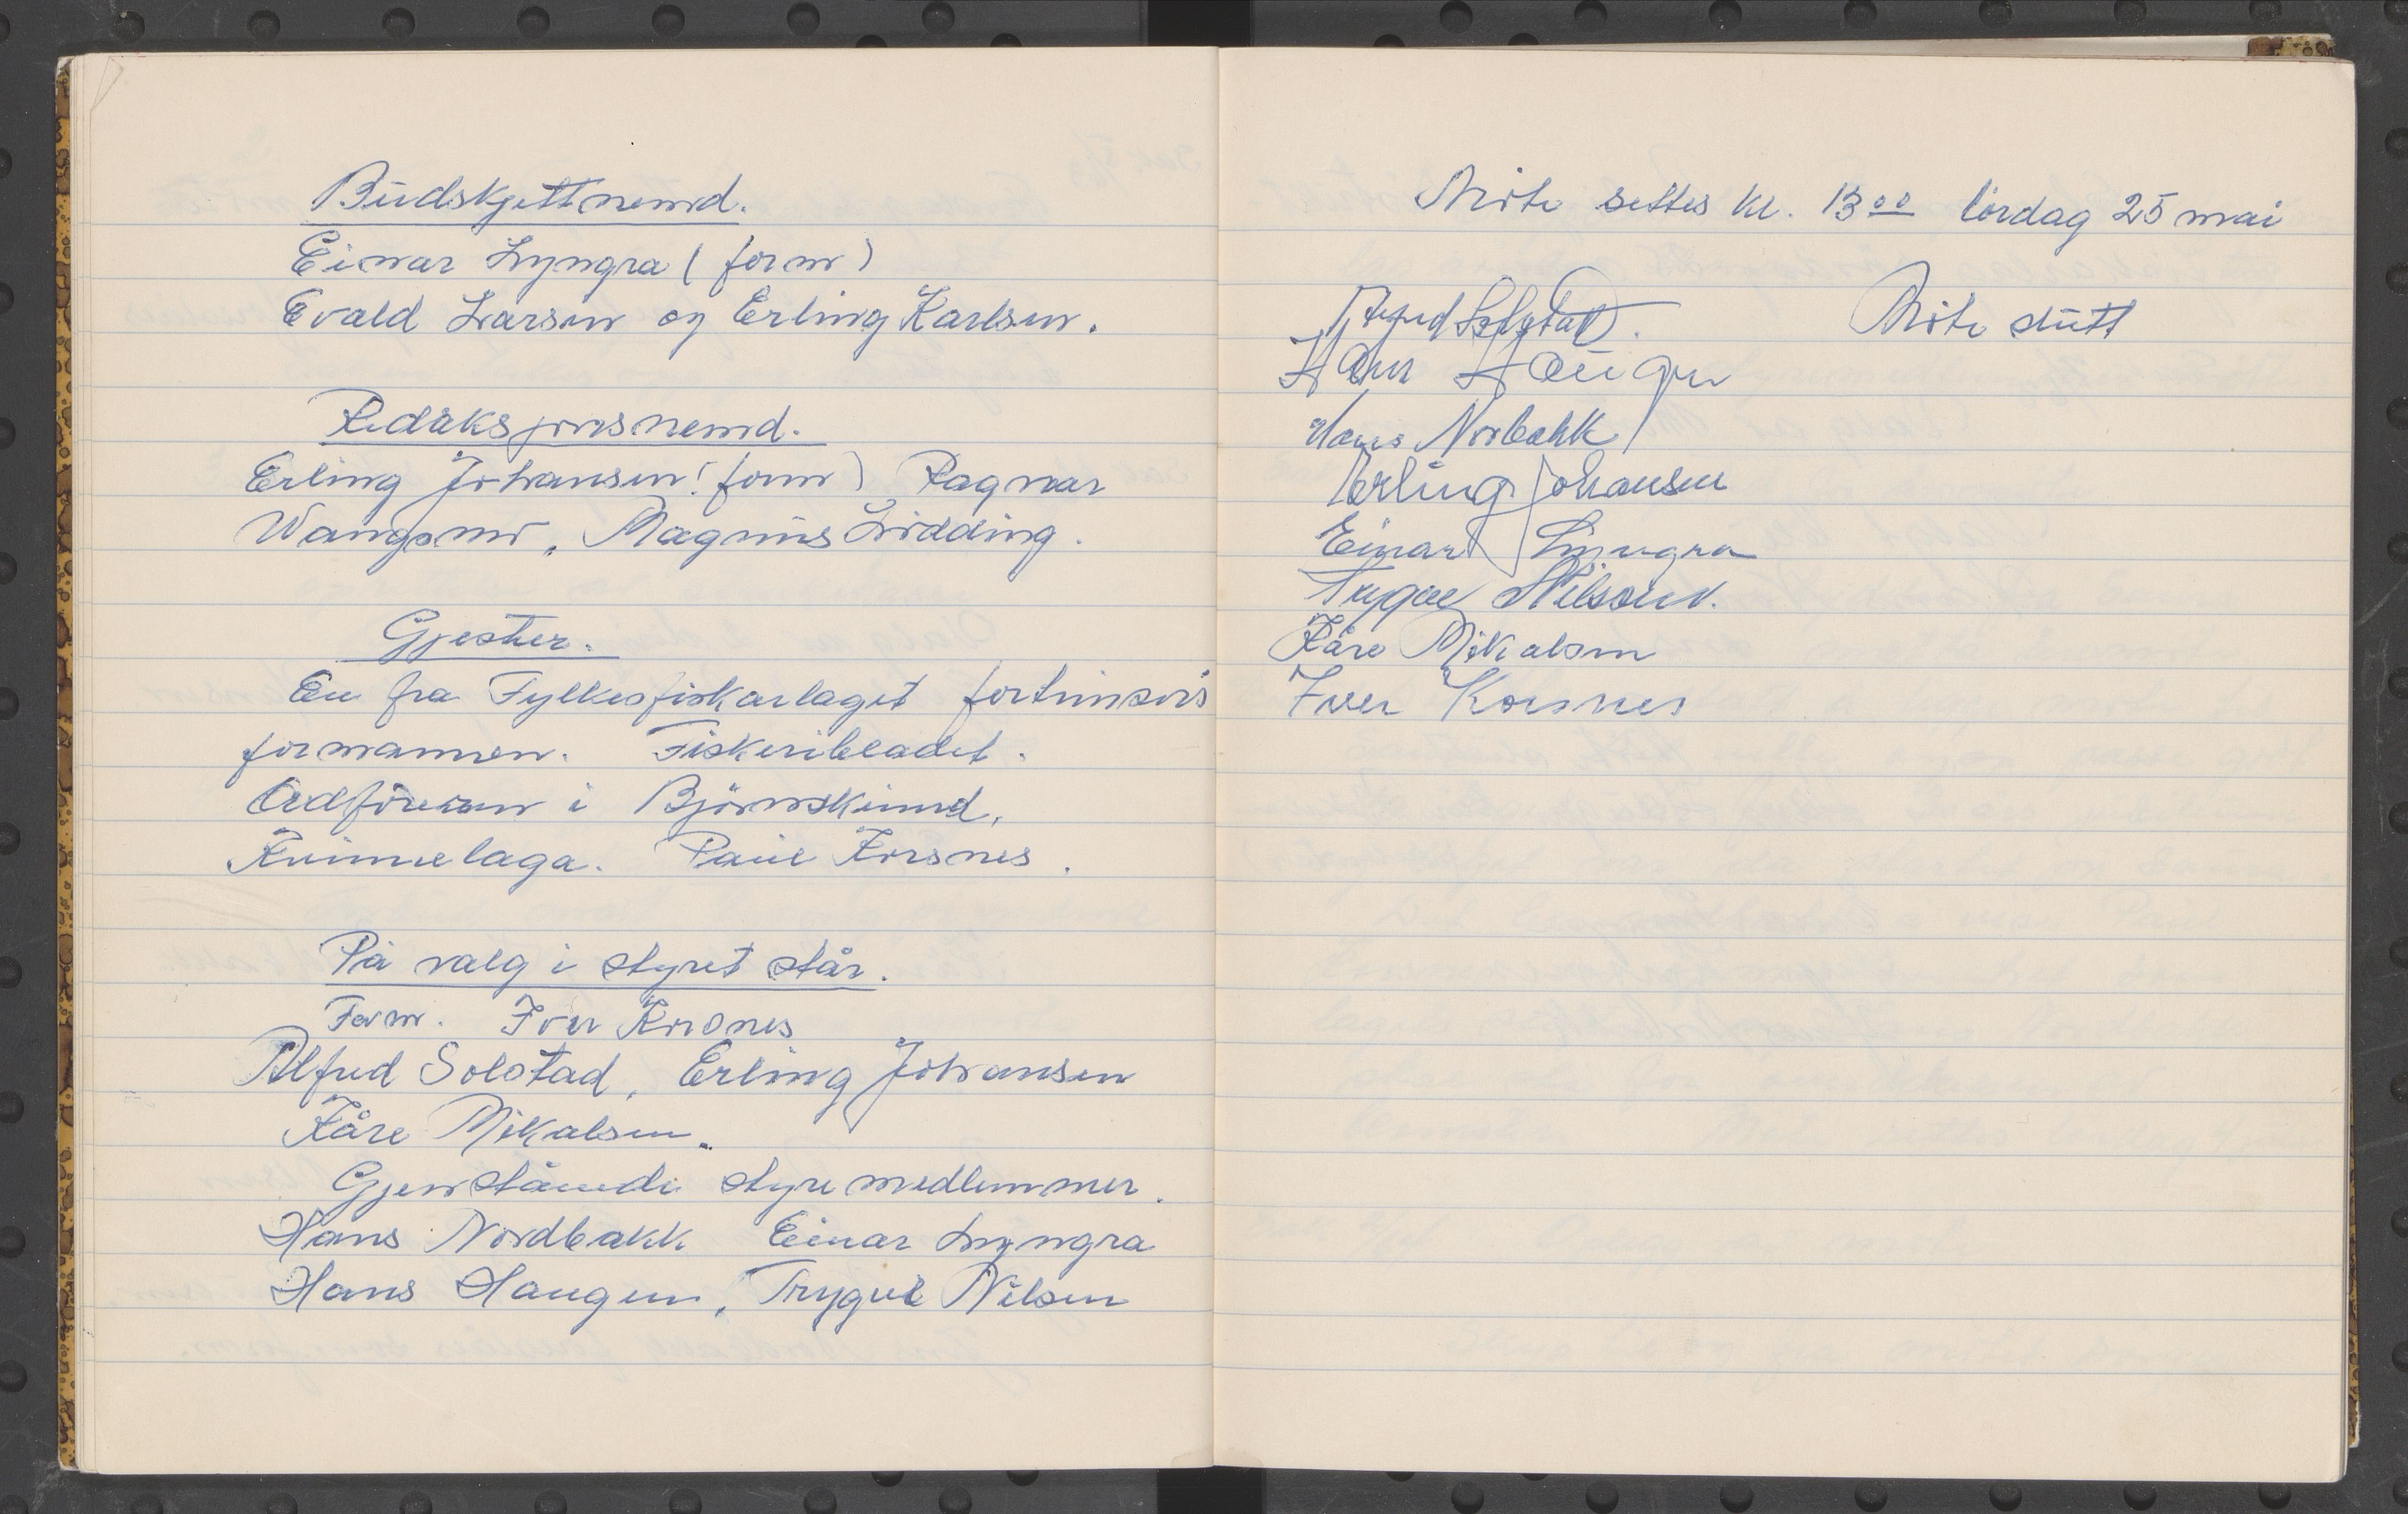 Budskjettnemd.
Einar Lyngra (form)
Evald Larsen og Erling Karlsen.
Redaksjonsnemd.
Erling Johansen (form) Ragnar
Wangsmo, Magnus Lødding.
Gjester.
En fra Fylkesfiskarlaget fortrinsvis
formannen. Fiskeribladet.
Ordføreren i Bjørnskinnd,
Kvinnelaga. Paul Korsnes.
På valg i styret står.
Form. Iver Korsnes
Alfred Solstad, Erling Johansen
Kåre Mikalsen.
Gjenstående styremedlemmer.
Hans Nordbakk Einar Lyngra
Hans Haugen, Trygve Nilsen
Møte settes kl. 13⁰⁰ lørdag 25 mai
Alfred Solstad. Møte slutt
Hans Haugen
Hans Norbakk
Erling Johansen
Einar Lyngra
Trygve Nilsen.
Kåre Mikalsen
Iver Korsnes